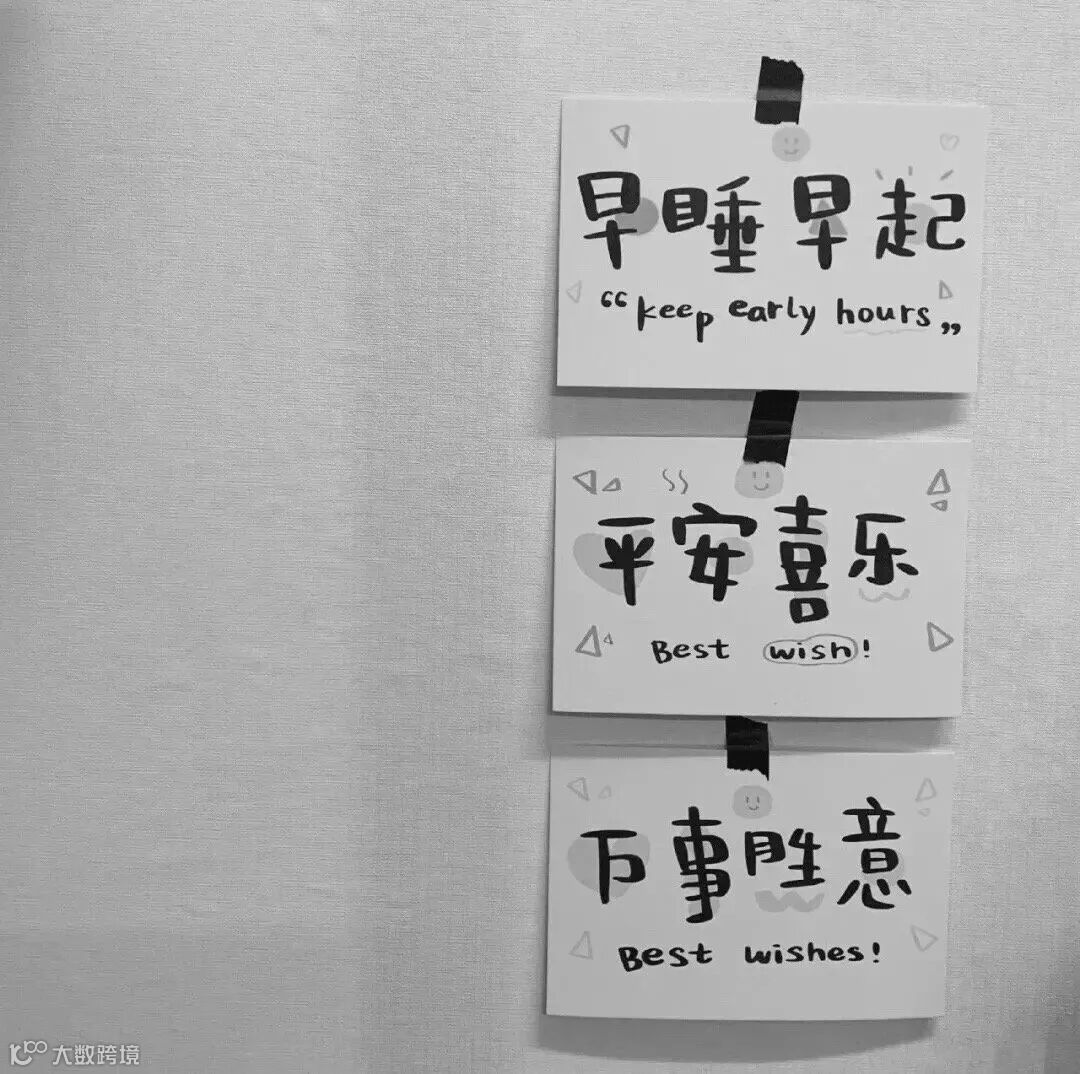 早睡早起
“keep early hours„
平安喜乐
Best wish!
万事胜意
Best wishes!
大数跨境